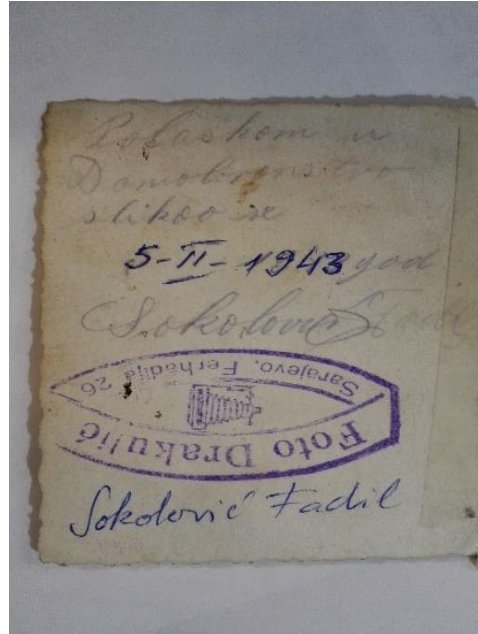 Polaskom u
Domobranstvo
slikao se
5-II-1943 god
Sokolović Fadil
Foto Drakulić
Sarajevo, Ferhadija 26
Sokolović Fadil